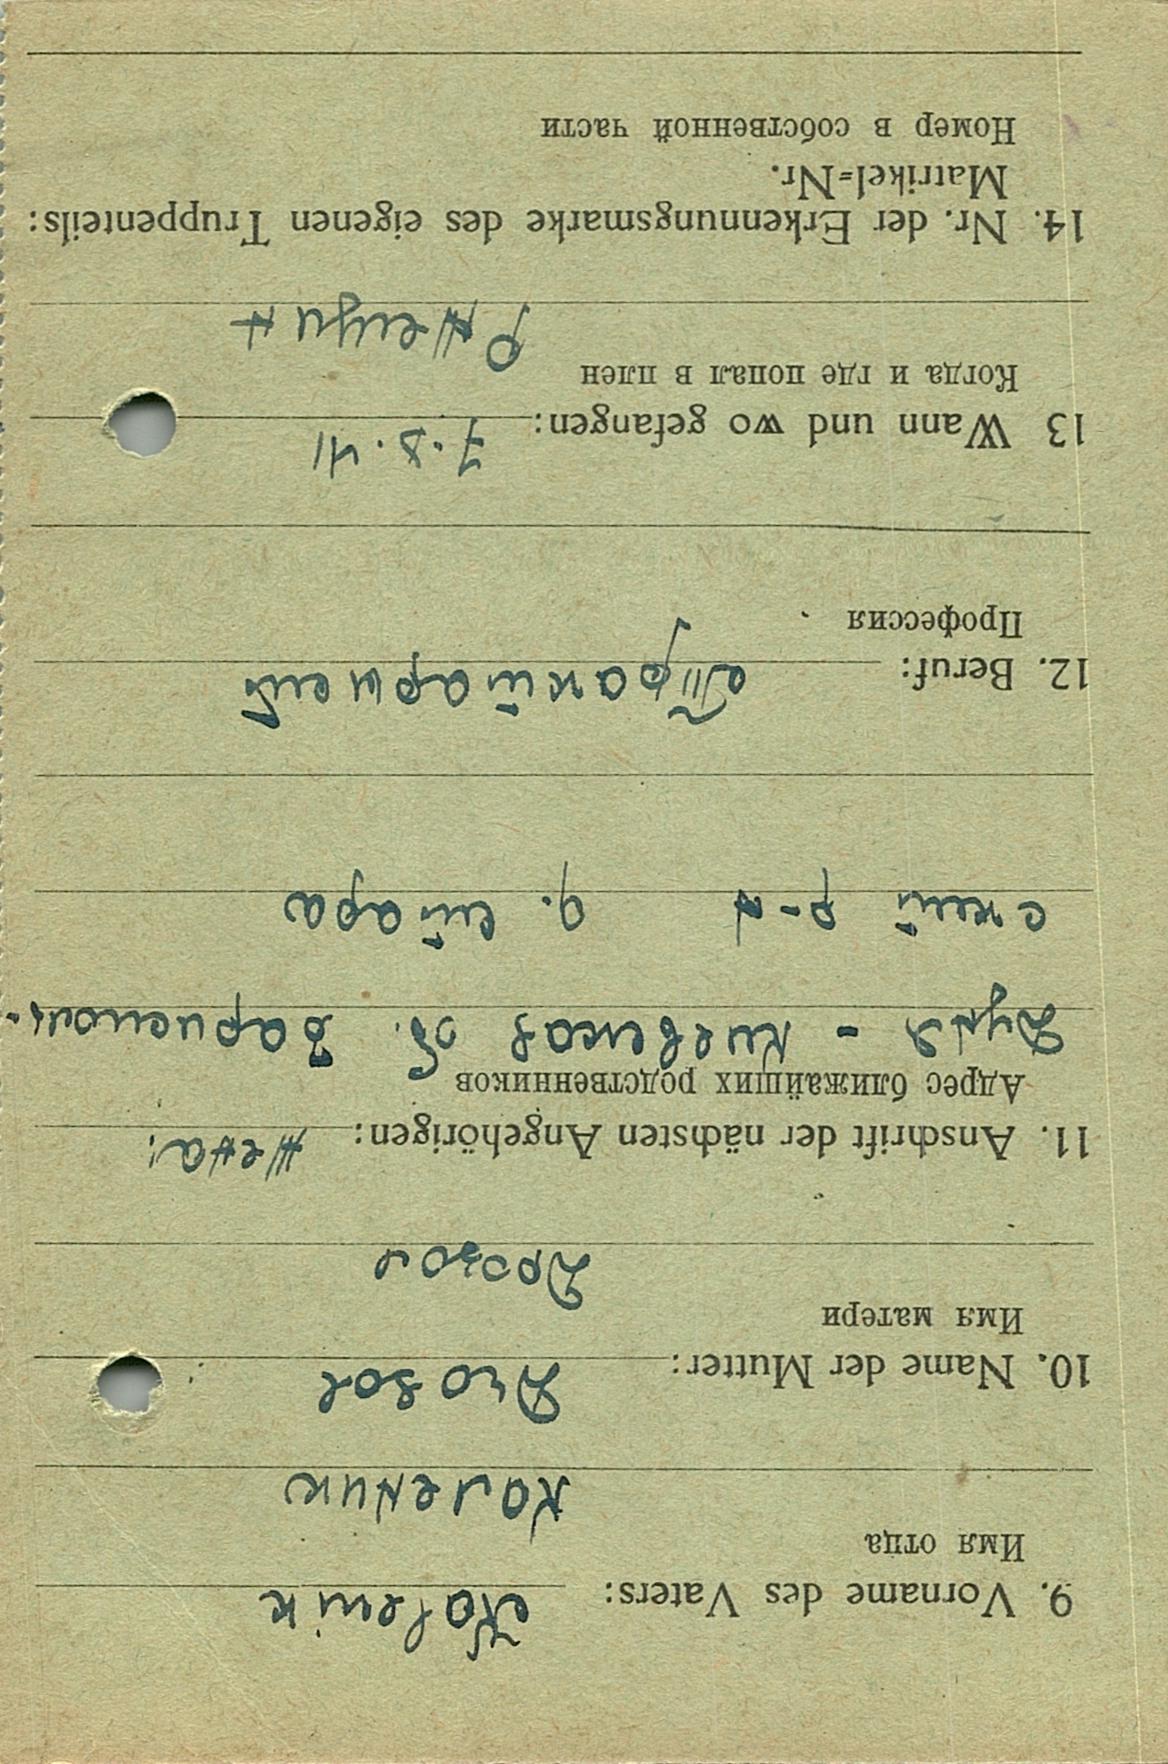 9. Vorname des Vaters: Kalenik
Имя отца
Каленик
10. Name der Mutter:
Имя матери
11. Anschrift der nächsten Angehörigen: Жена:
Адрес ближайших родственников
Киевская об.
ский р-н
12. Beruf:
Профессия
13 Wann und wo gefangen: 7.8.41
Когда и где попал в плен
Ржещин
14. Nr. der Erkennungsmarke des eigenen Truppenteils:
Matrikel=Nr.
Номер в собственной части